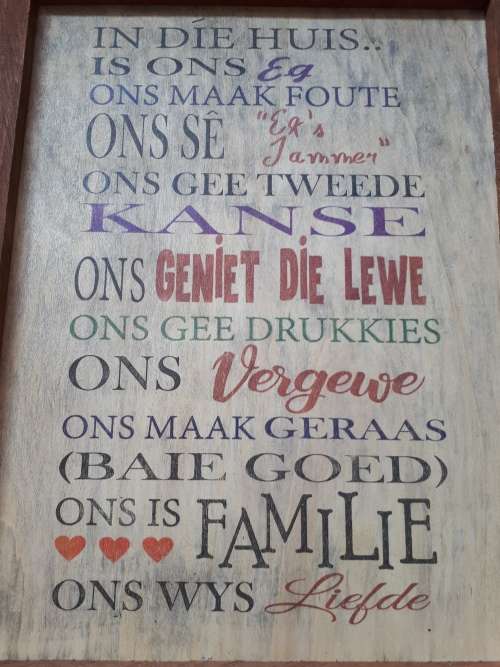 IN DÍE HUIS..
IS ONS Eg
ONS MAAK FOUTE
ONS SÊ "Ek's Jammer"
ONS GEE TWEEDE
KANSE
ONS GENIET DIE LEWE
ONS GEE DRUKKIES
ONS Vergewe
ONS MAAK GERAAS
(BAIE GOED)
ONS IS FAMILIE
ONS WYS Liefde